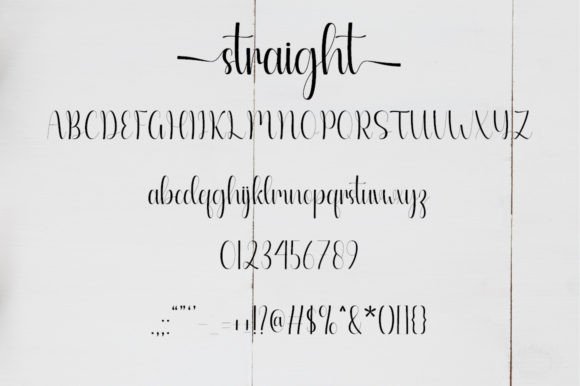 straight
ABCDEFGHIJKLMNOPQRSTUVWXYZ
abcdefghijklmnopqrstuvwxyz
0123456789
.,;:“”‘’-_=+±!?@#$%^&*()[]{}